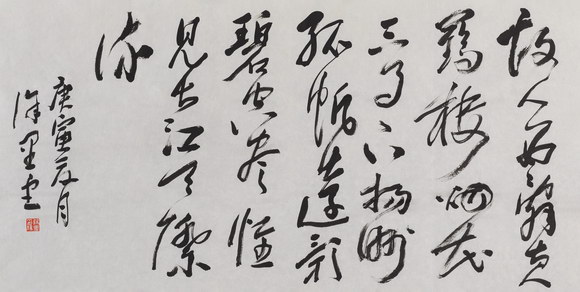 故人西辞黄
鹤楼烟花
三月下扬州
孤帆远影
碧空尽惟
见长江天际
流
庚寅元月
徐里书